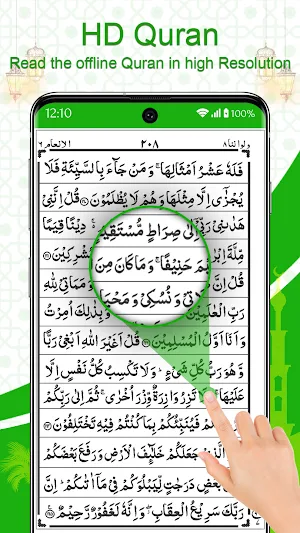 HD Quran
Read the offline Quran in high Resolution
12:10 100%
ولو اننا ٨ ٢٠٨ الانعام ٦
فَلَهٗ عَشْرُ اَمْثَالِهَا ۚ وَ مَنْ جَآءَ بِالسَّيِّئَةِ فَلَا
يُجْزٰٓى اِلَّا مِثْلَهَا وَ هُمْ لَا يُظْلَمُوْنَ قُلْ اِنَّنِيْ
هَدٰىنِيْ رَبِّيْٓ اِلٰى صِرَاطٍ مُّسْتَقِيْمٍ دِيْنًا قِيَمًا
مِّلَّةَ حَنِيْفًا ۚ وَ مَا كَانَ مِنَ
قُلْ اِنَّ وَ نُسُكِيْ وَ مَحْيَا وَ مَمَاتِيْ لِلّٰهِ
رَبِّ الْعٰلَمِيْنَ وَ بِذٰلِكَ اُمِرْتُ
وَ اَنَا اَوَّلُ الْمُسْلِمِيْنَ قُلْ اَغَيْرَ اللّٰهِ اَبْغِيْ رَبًّا
وَّ هُوَ رَبُّ كُلِّ شَيْءٍ ؕ وَ لَا تَكْسِبُ كُلُّ نَفْسٍ اِلَّا
عَلَيْهَا ۚ تَزِرُ وَازِرَةٌ وِّزْرَ اُخْرٰى ۚ ثُمَّ اِلٰى رَبِّكُمْ
فَيُنَبِّئُكُمْ بِمَا كُنْتُمْ فِيْهِ تَخْتَلِفُوْنَ
الَّذِيْ جَعَلَكُمْ خَلٰٓئِفَ الْاَرْضِ وَ رَفَعَ بَعْضَكُمْ
بَعْضٍ دَرَجٰتٍ لِّيَبْلُوَكُمْ فِيْ مَآ اٰتٰىكُمْ ؕ اِنَّ
رَبَّكَ سَرِيْعُ الْعِقَابِ ۖ وَ اِنَّهٗ لَغَفُوْرٌ رَّحِيْمٌ